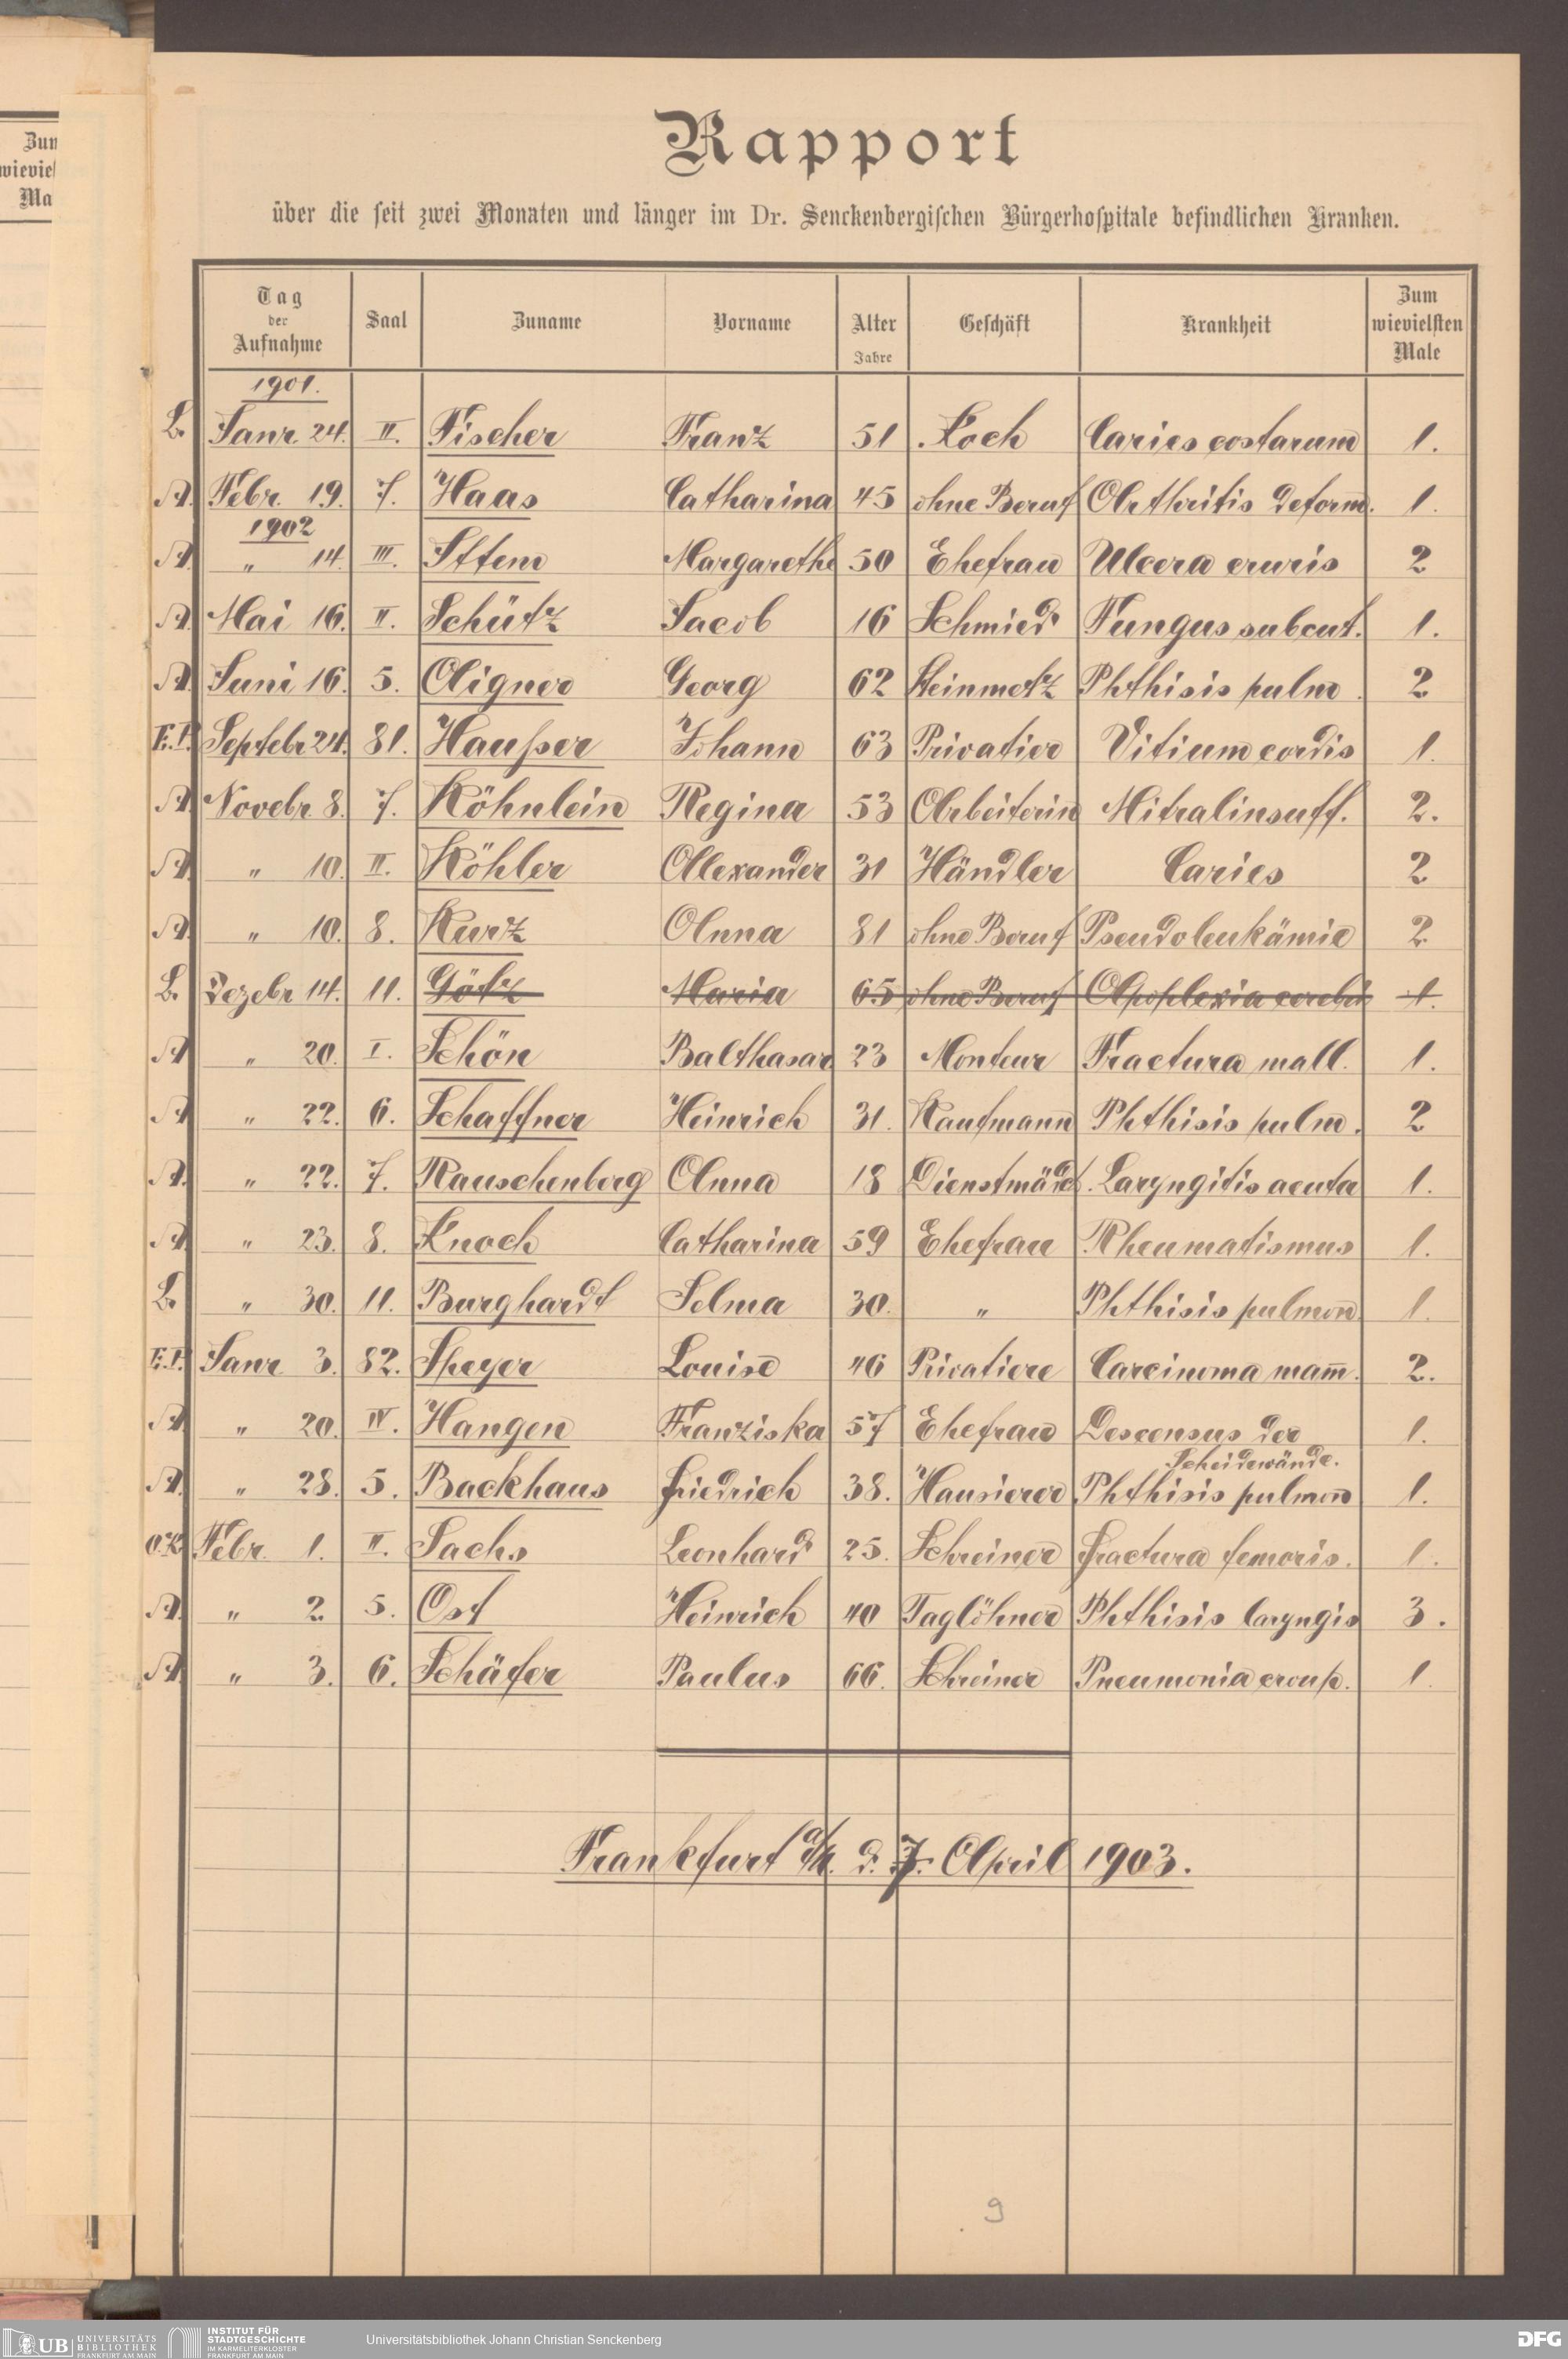 Zum
wieviel
Ma
Rapport
über die seit zwei Monaten und länger im Dr. Senckenbergischen Bürgerhospitale befindlichen Kranken.
Tag der Aufnahme Saal Zuname Vorname Alter Jahre Geschäft Krankheit Zum wievielsten Male
1901.
L. Janr. 24. II. Fischer Franz 51 Koch Caries costarum 1.
A. Febr. 19. 7. Haas Catharina 45 ohne Beruf Arthritis deform. 1.
1902
A. " 14. III. Ittem Margarethe 50 Ehefrau Ulcera cruris 2
A. Mai 16. II. Schütz Jacob 16 Schmied Fungus subcut. 1.
A. Juni 16. 5. Aigner Georg 62 Steinmetz Phthisis pulm. 2
E.P. Septebr 24. 81. Hausser Johann 63 Privatier Vitium cordis 1.
A. Novebr. 8. 7. Köhnlein Regina 53 Arbeiterin Mitralinsuff. 2.
A. " 10. II. Köhler Alexander 31 Händler Caries 2
A. " 10. 8. Kurz Anna 81 ohne Beruf Pseudoleukämie 2
L. Dezebr. 14. 11. Götz Maria 65 ohne Beruf Apoplexia cerebri 1.
A " 20. I. Schön Balthasar 23 Monteur Fractura mall. 1.
A " 22. 6. Schaffner Heinrich 31. Kaufmann Phthisis pulm. 2
A. " 22. 7. Rauschenberg Anna 18 Dienstmädch. Laryngitis acuta 1.
A. " 23. 8. Knoch Catharina 59 Ehefrau Rheumatismus 1.
L. " 30. 11. Burghardt Selma 30. " Phthisis pulmon. 1.
E.P. Janr. 3. 82. Speyer Louise 46 Privatiere Carcinoma mam̄. 2.
A. " 20. IV. Hangen Franziska 57 Ehefrau Descensus der 1.
Scheidewände.
A. " 28. 5. Backhaus Friedrich 38. Hausierer Phthisis pulmon 1.
O.K. Febr. 1. II. Sachs Leonhard 25. Schreiner Fractura femoris. 1.
A. " 2 5. Ost Heinrich 40 Taglöhner Phthisis laryngis 3.
A. " 3. 6. Schäfer Paulus 66. Schreiner Pneumonia croup. 1.
Frankfurt a/M. d. 7. April 1903.
9
UB UNIVERSITÄTS BIBLIOTHEK FRANKFURT AM MAIN
INSTITUT FÜR STADTGESCHICHTE IM KARMELITERKLOSTER FRANKFURT AM MAIN
Universitätsbibliothek Johann Christian Senckenberg
DFG